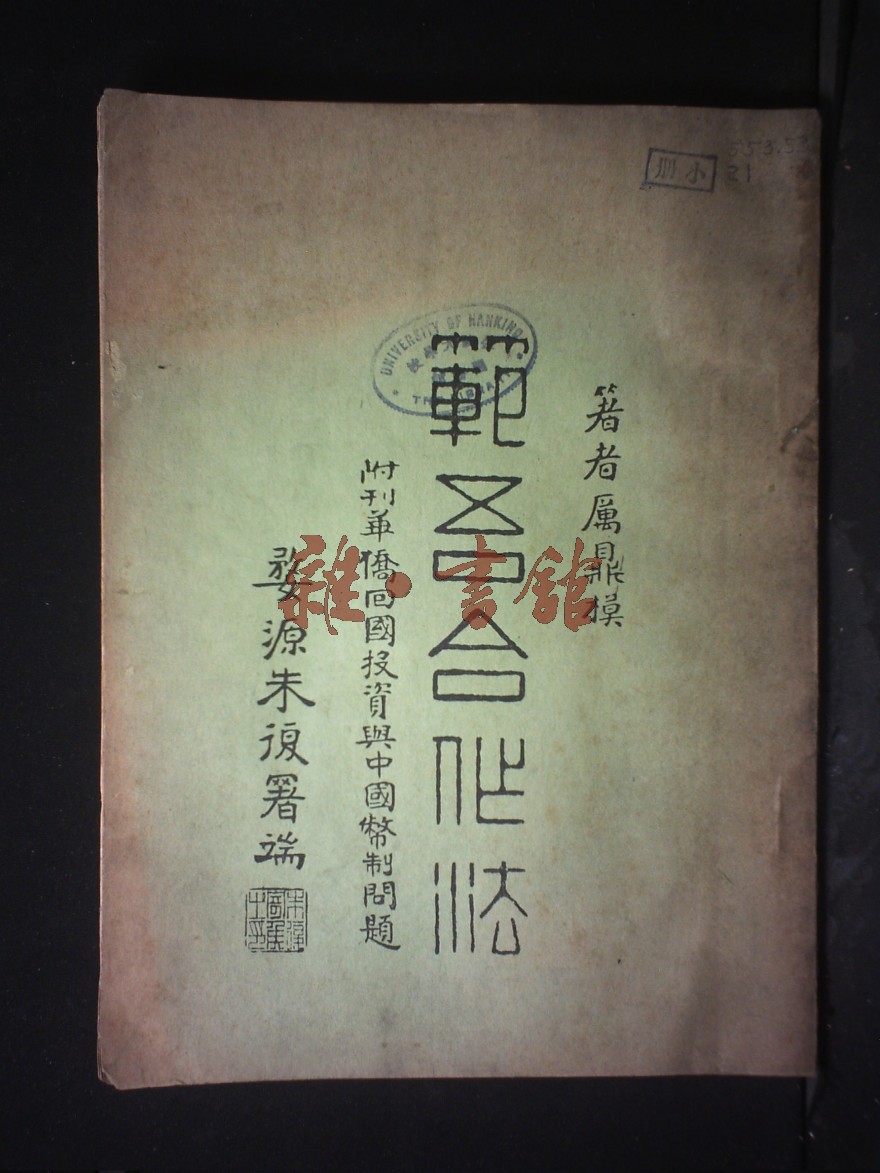 小冊
553.5
21
UNIVERSITY OF NANKING
著者厲鼎模
範吾合化法
附刊華僑回國投資與中國幣制問題
婺源朱復署端
雜·書館